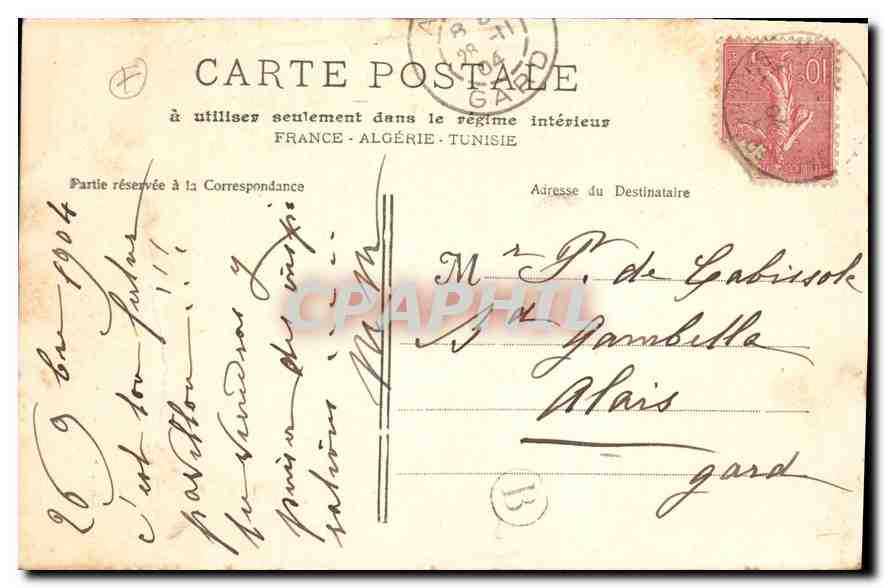 CARTE POSTALE
à utiliser seulement dans le régime intérieur
FRANCE - ALGÉRIE - TUNISIE
Partie réservée à la Correspondance
Adresse du Destinataire
26 9bre 1904
c'est ton futur
pavillon !!!
tu viendras y
puiser des inspi
rations
Mr P. de Cabissole
Bd Gambetta
Alais
gard
B
GARD
28 -11
04
10
CPAPHIL